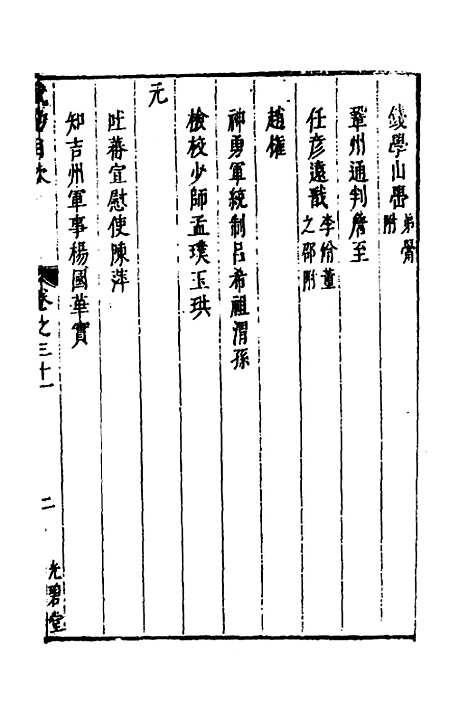 錢學山嶨弟嚳附
鞏州通判詹至
任彥遠戩李紛董之邵附
趙權
神勇軍統制呂希祖渭孫
檢校少師孟璞玉珙
元
吐蕃宣慰使陳萍
知吉州軍事楊國華實
目次 卷之三十一 二 光碧堂